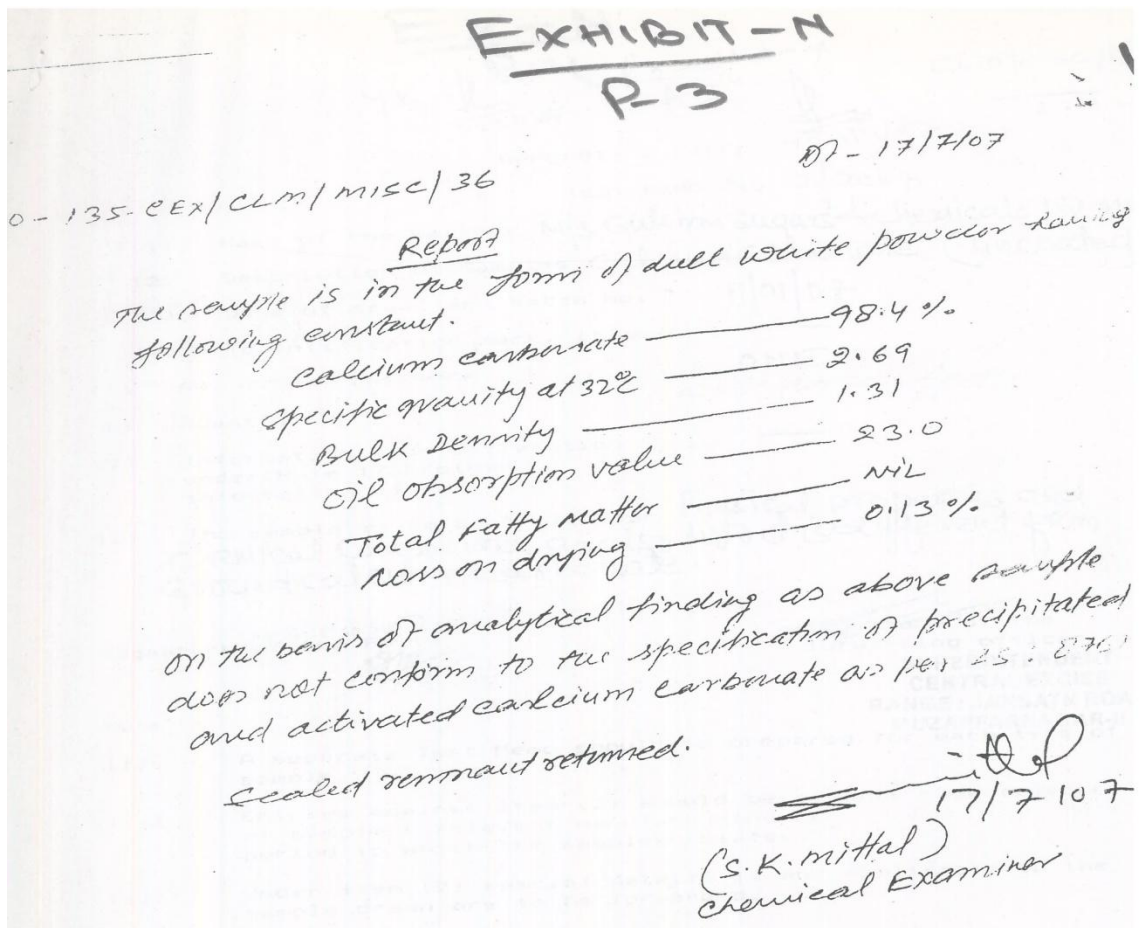 EXHIBIT-N
P-3
Dt - 17/7/07
0-135-CEX/CLM/MISC/36
Report
The sample is in the form of dull white powder having
following constant.
Calcium carbonate — 98.4 %
Specific gravity at 32°C — 2.69
Bulk Density — 1.31
Oil absorption value — 23.0
Total Fatty matter — NIL
Loss on drying — 0.13 %
On the basis of analytical finding as above sample
does not confirm to the specification of precipitated
and activated calcium carbonate as per
Sealed remnant returned.
17/7/07
(S.K. Mittal)
Chemical Examiner